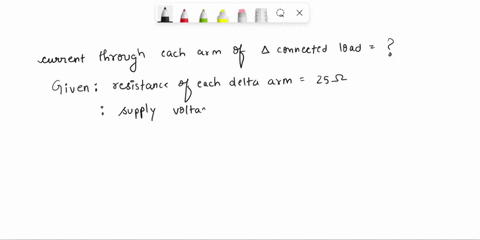 current through each arm of Δ connected load = ?
Given : resistance of each delta arm = 25Ω
: supply volta